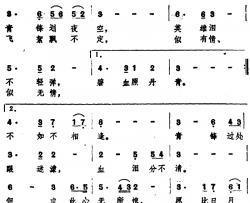 3· 6 5 6 5 2 3· 3· 3· 5
青锋划夜空， 英雄泪
飞絮飘不定， 似有情，
1.
5· 5 5 2 4· 3 2 1 2·
不轻弹， 碧血照丹青。
似无情，
2.
4· 3 7 1 7 6· 3· 6 4 3
不如不相逢。 青锋过处
3· 2 2· 2 5 5 4
眼迷濛， 血泪分不清。
3· 6 5 5· 4 3 2 1 7 6 1
此心无所愧， 愿比日月